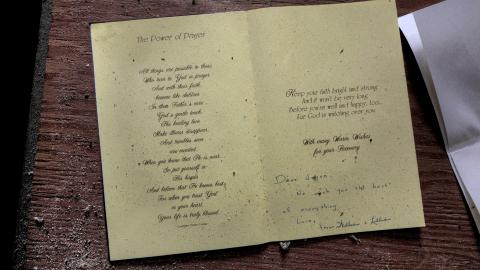 The Power of Prayer
All things are possible to those
Who turn to God in prayer
And with their faith
become like children
In their Father's care
God's gentle touch,
His healing love
Make illness disappear,
And troubles seem
no more
When you know that He is near
So put yourself in
His hands
And believe that He knows best
For when you trust God
in your heart,
Your life is truly blessed.
Keep your faith bright and strong
And it won't be very long
Before you're well and happy, too...
For God is watching over you
With many Warm Wishes
for your Recovery
Dear
We wish you the best
of everything.
Love,